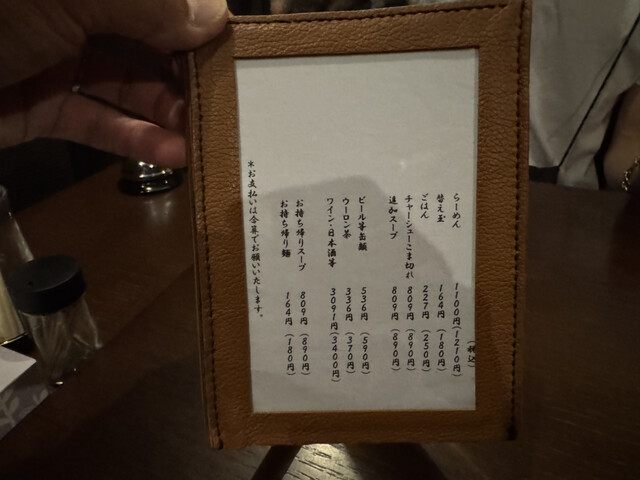 （税込）
らーめん 1100円（1210円）
替え玉 164円（180円）
ごはん 227円（250円）
チャーシューこま切れ 809円（890円）
追加スープ 809円（890円）
ビール等缶類 536円（590円）
ウーロン茶 336円（370円）
ワイン・日本酒等 3091円（3400円）
お持ち帰りスープ 809円（890円）
お持ち帰り麺 164円（180円）
＊お支払いは会算でお願いいたします。